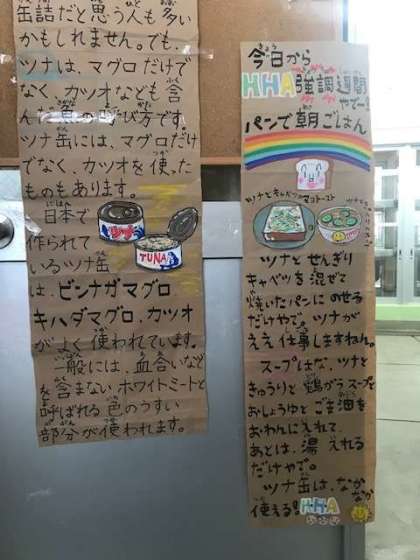 缶詰だと思う人も多い
かもしれません。でも、
ツナは、マグロだけで
なく、カツオなども含
んだ魚の呼び方です。
ツナ缶には、マグロだけ
でなく、カツオを使った
ものもあります。
日本で
作られて
いるツナ缶
は、ビンナガマグロ
キハダマグロ、カツオ
がよく使われています。
一般には、血合いなど
を含まないホワイトミートと
呼ばれる色のうすい
部分が使われます。
ツナ
TUNA
今日から
HHA強調週間
やでー!
パンで朝ごはん
ツナとキャベツの
トースト
ツナときゅうりの
スープ
ツナとせんぎり
キャベツを混ぜて
焼いたパンにのせる
だけやで。ツナが
ええ仕事しますねん。
スープはな、ツナと
きゅうりと鶏がらスープと
おしょうゆとごま油を
おわんに入れて、
あとは、湯入れる
だけやで。
ツナ缶は、なかなか
使える!HHA